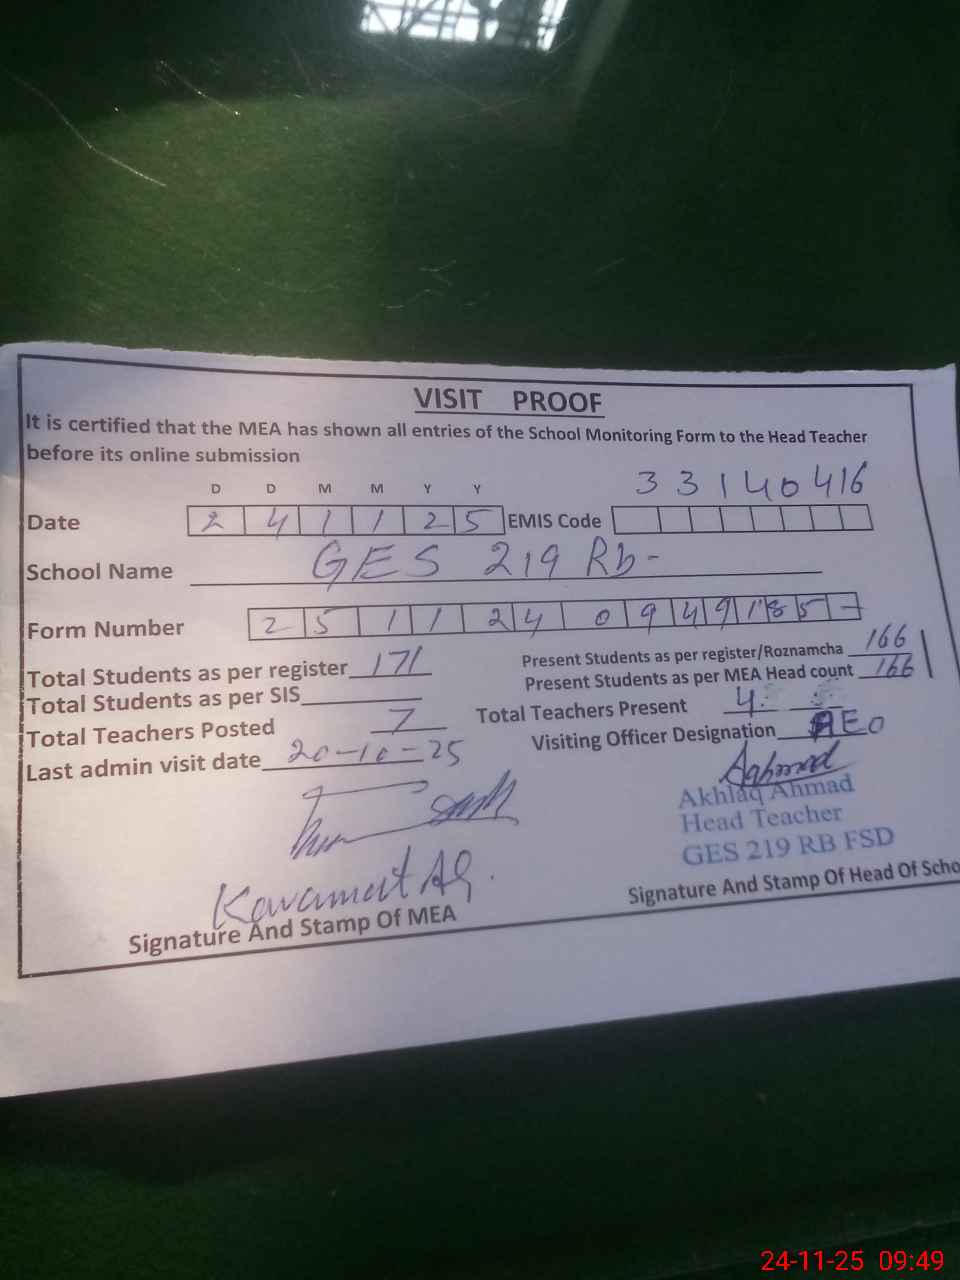 VISIT PROOF
It is certified that the MEA has shown all entries of the School Monitoring Form to the Head Teacher
before its online submission
D D M M Y Y
33140416
Date 241125 EMIS Code
School Name GES 219 Rb-
Form Number 2511240949185-
Total Students as per register 171 Present Students as per register/Roznamcha 166
Total Students as per SIS Present Students as per MEA Head count 166
Total Teachers Posted 7 Total Teachers Present 4
Last admin visit date 20-10-25 Visiting Officer Designation AEO
Akhlaq Ahmad
Head Teacher
GES 219 RB FSD
Signature And Stamp Of MEA Signature And Stamp Of Head Of Scho
24-11-25 09:49